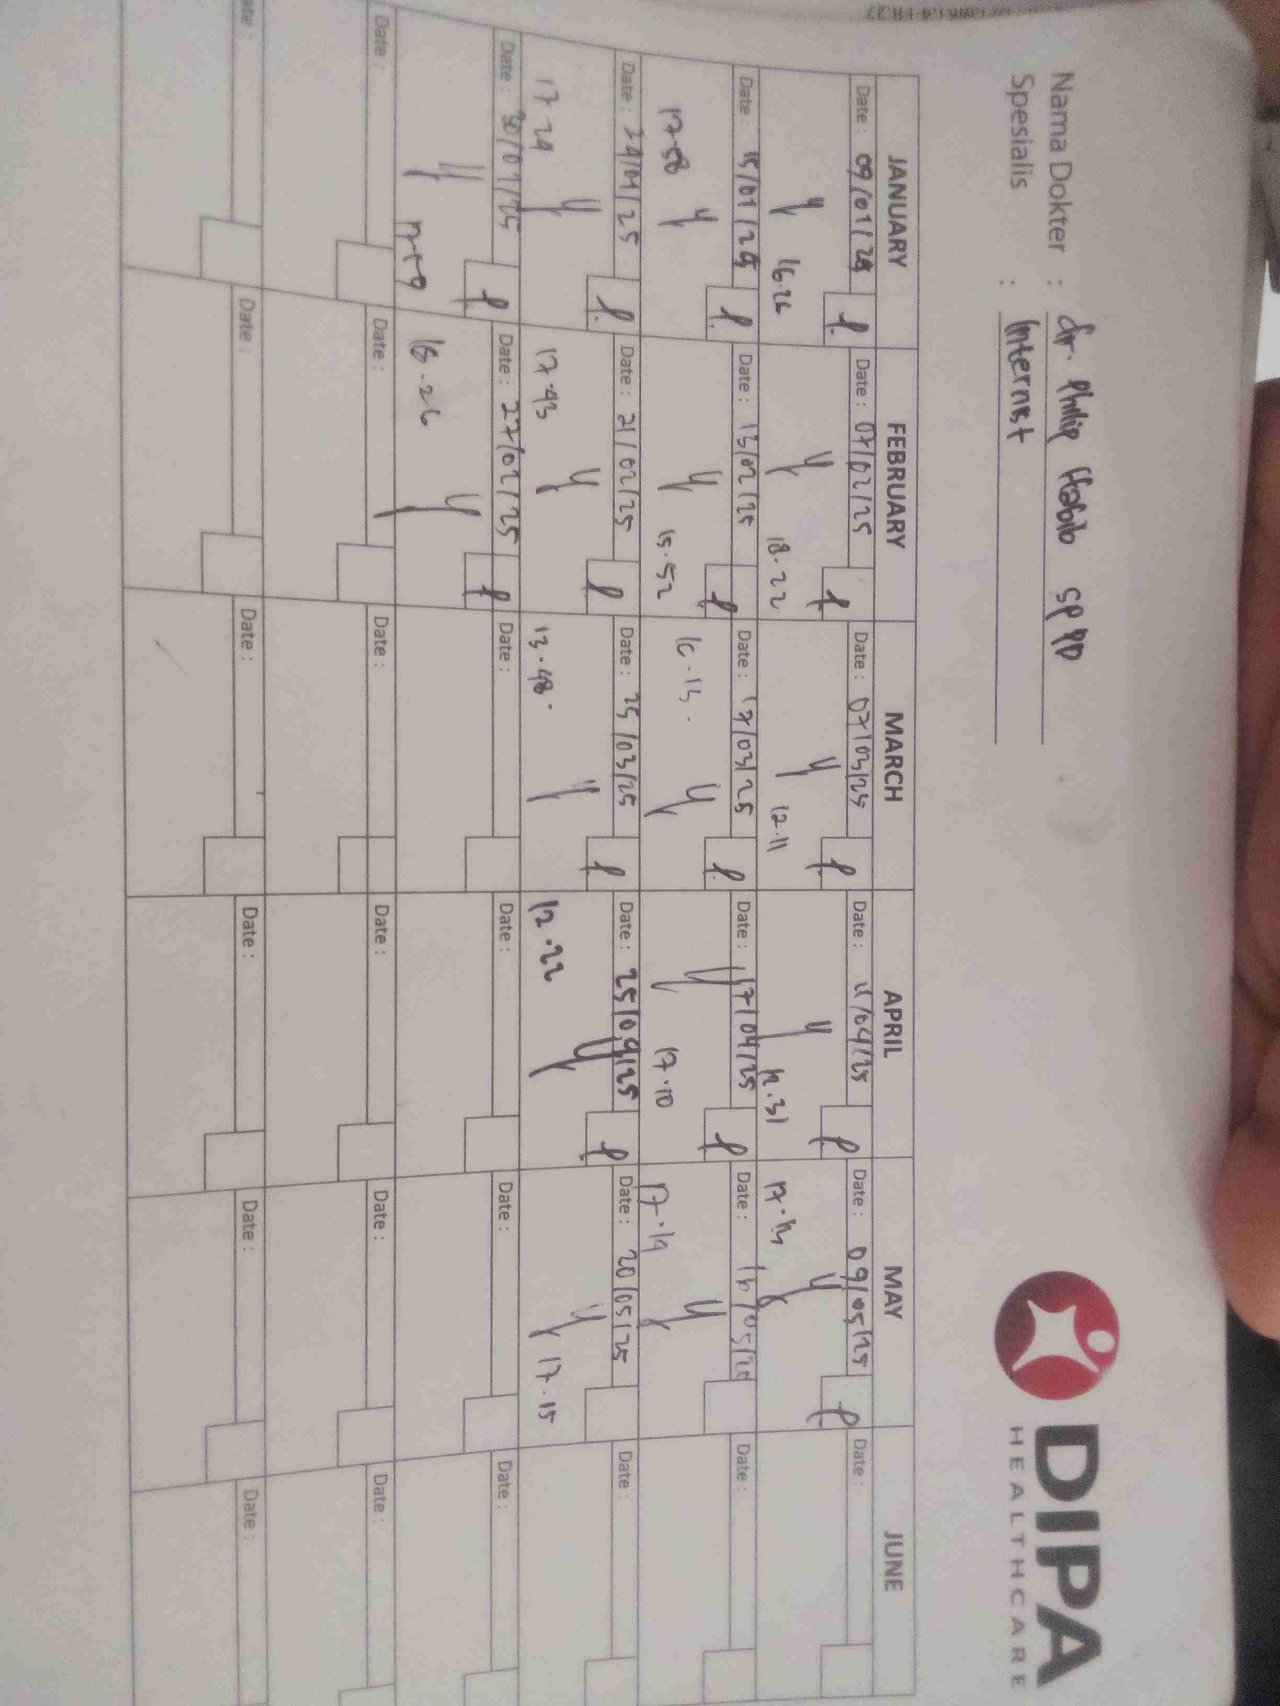 DIPA
HEALTHCARE
Nama Dokter : dr. Philip Habib SpPD
Spesialis : Internist
JANUARY FEBRUARY MARCH APRIL MAY JUNE
Date : 09/01/25 Date : 07/02/25 Date : 07/03/25 Date : 11/04/25 Date : 09/05/25 Date :
16.26 18.22 12.11 12.31 17.13
Date : 15/01/25 Date : 13/02/25 Date : 17/03/25 Date : 17/04/25 Date : 16/05/25 Date :
17.58 15.52 16.13. 17.10 17.19
Date : 24/01/25 Date : 21/02/25 Date : 25/03/25 Date : 25/04/25 Date : 20/05/25 Date :
17.29 17.43 13.48. 12.22 17.15
Date : 30/01/25 Date : 27/02/25 Date : Date : Date : Date :
18.26
Date : Date : Date : Date : Date : Date :
Date : Date : Date : Date : Date : Date :